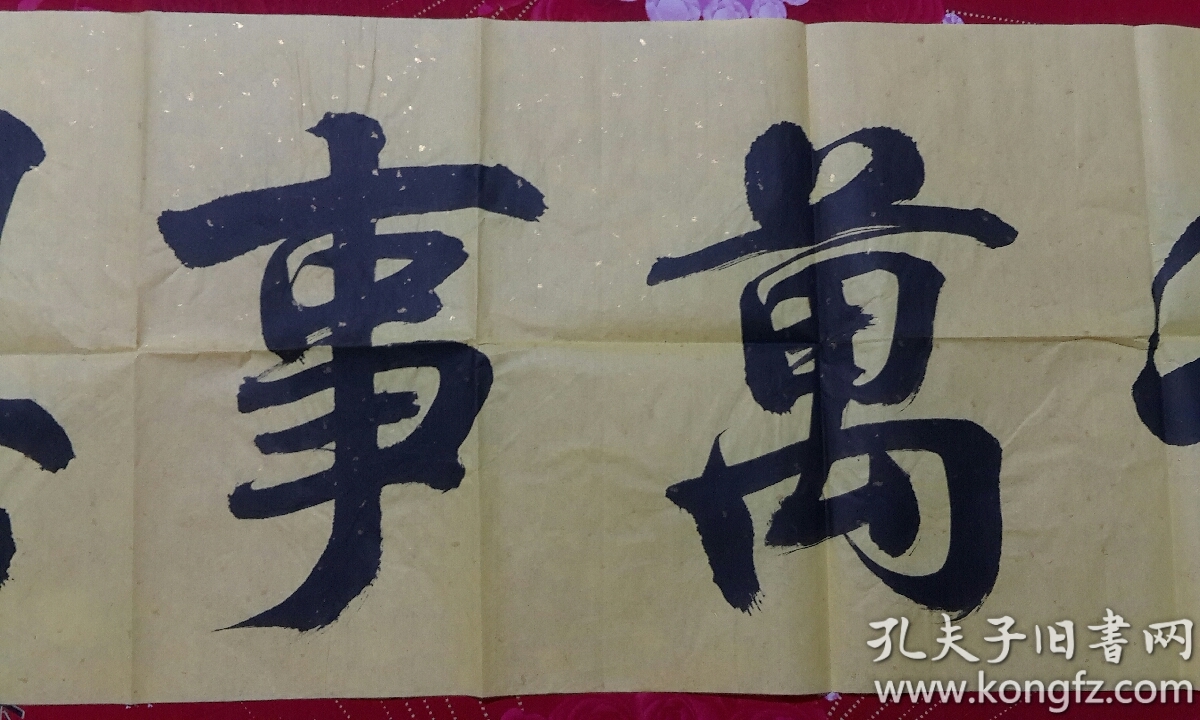 事萬
孔夫子旧書网
www.kongfz.com